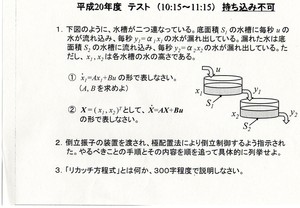 平成20年度 テスト (10:15～11:15) 持ち込み不可
1. 下図のように、水槽が二つ連なっている。底面積 S₁の水槽に毎秒 u の
水が流れ込み、毎秒 y₁=α₁x₁の水が漏れ出している。漏れた水は底
面積 S₂の水槽に流れ込み、毎秒 y₂=α₂x₂の水が漏れ出している。た
だし、x₁, x₂は各水槽の水の高さである。
① ẋ₁=Ax₁+Bu の形で表しなさい。
(A, B を求めよ)
② X = (x₁, x₂)ᵀとして、Ẋ=AX+Bu
の形で表しなさい。
u
x₁
S₁
y₁
x₂
S₂
y₂
2. 倒立振子の装置を渡され、極配置法により倒立制御するよう指示され
た。やるべきことの手順とその内容を順を追って具体的に列挙せよ。
3. 「リカッチ方程式」とは何か、300字程度で説明しなさい。